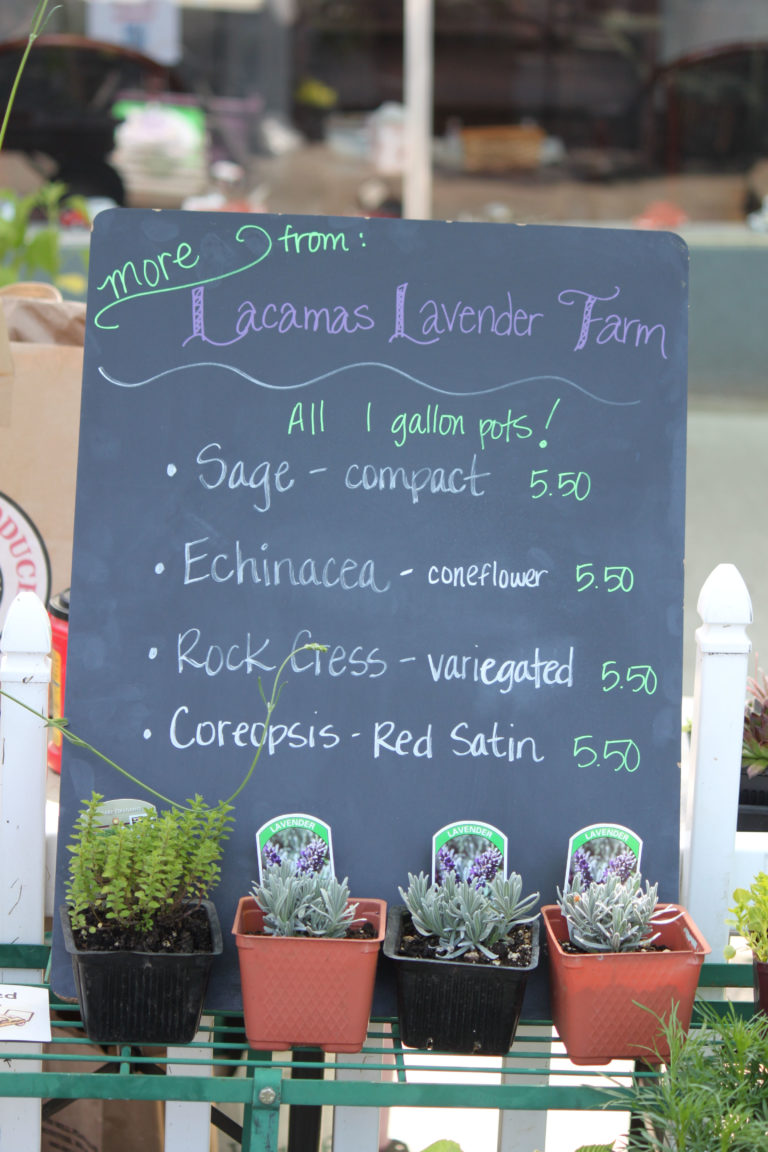 more from:
Lacamas Lavender Farm
All 1 gallon pots!
• Sage - compact 5.50
• Echinacea - coneflower 5.50
• Rock Cress - variegated 5.50
• Coreopsis - Red Satin 5.50
LAVENDER
LAVENDER
LAVENDER